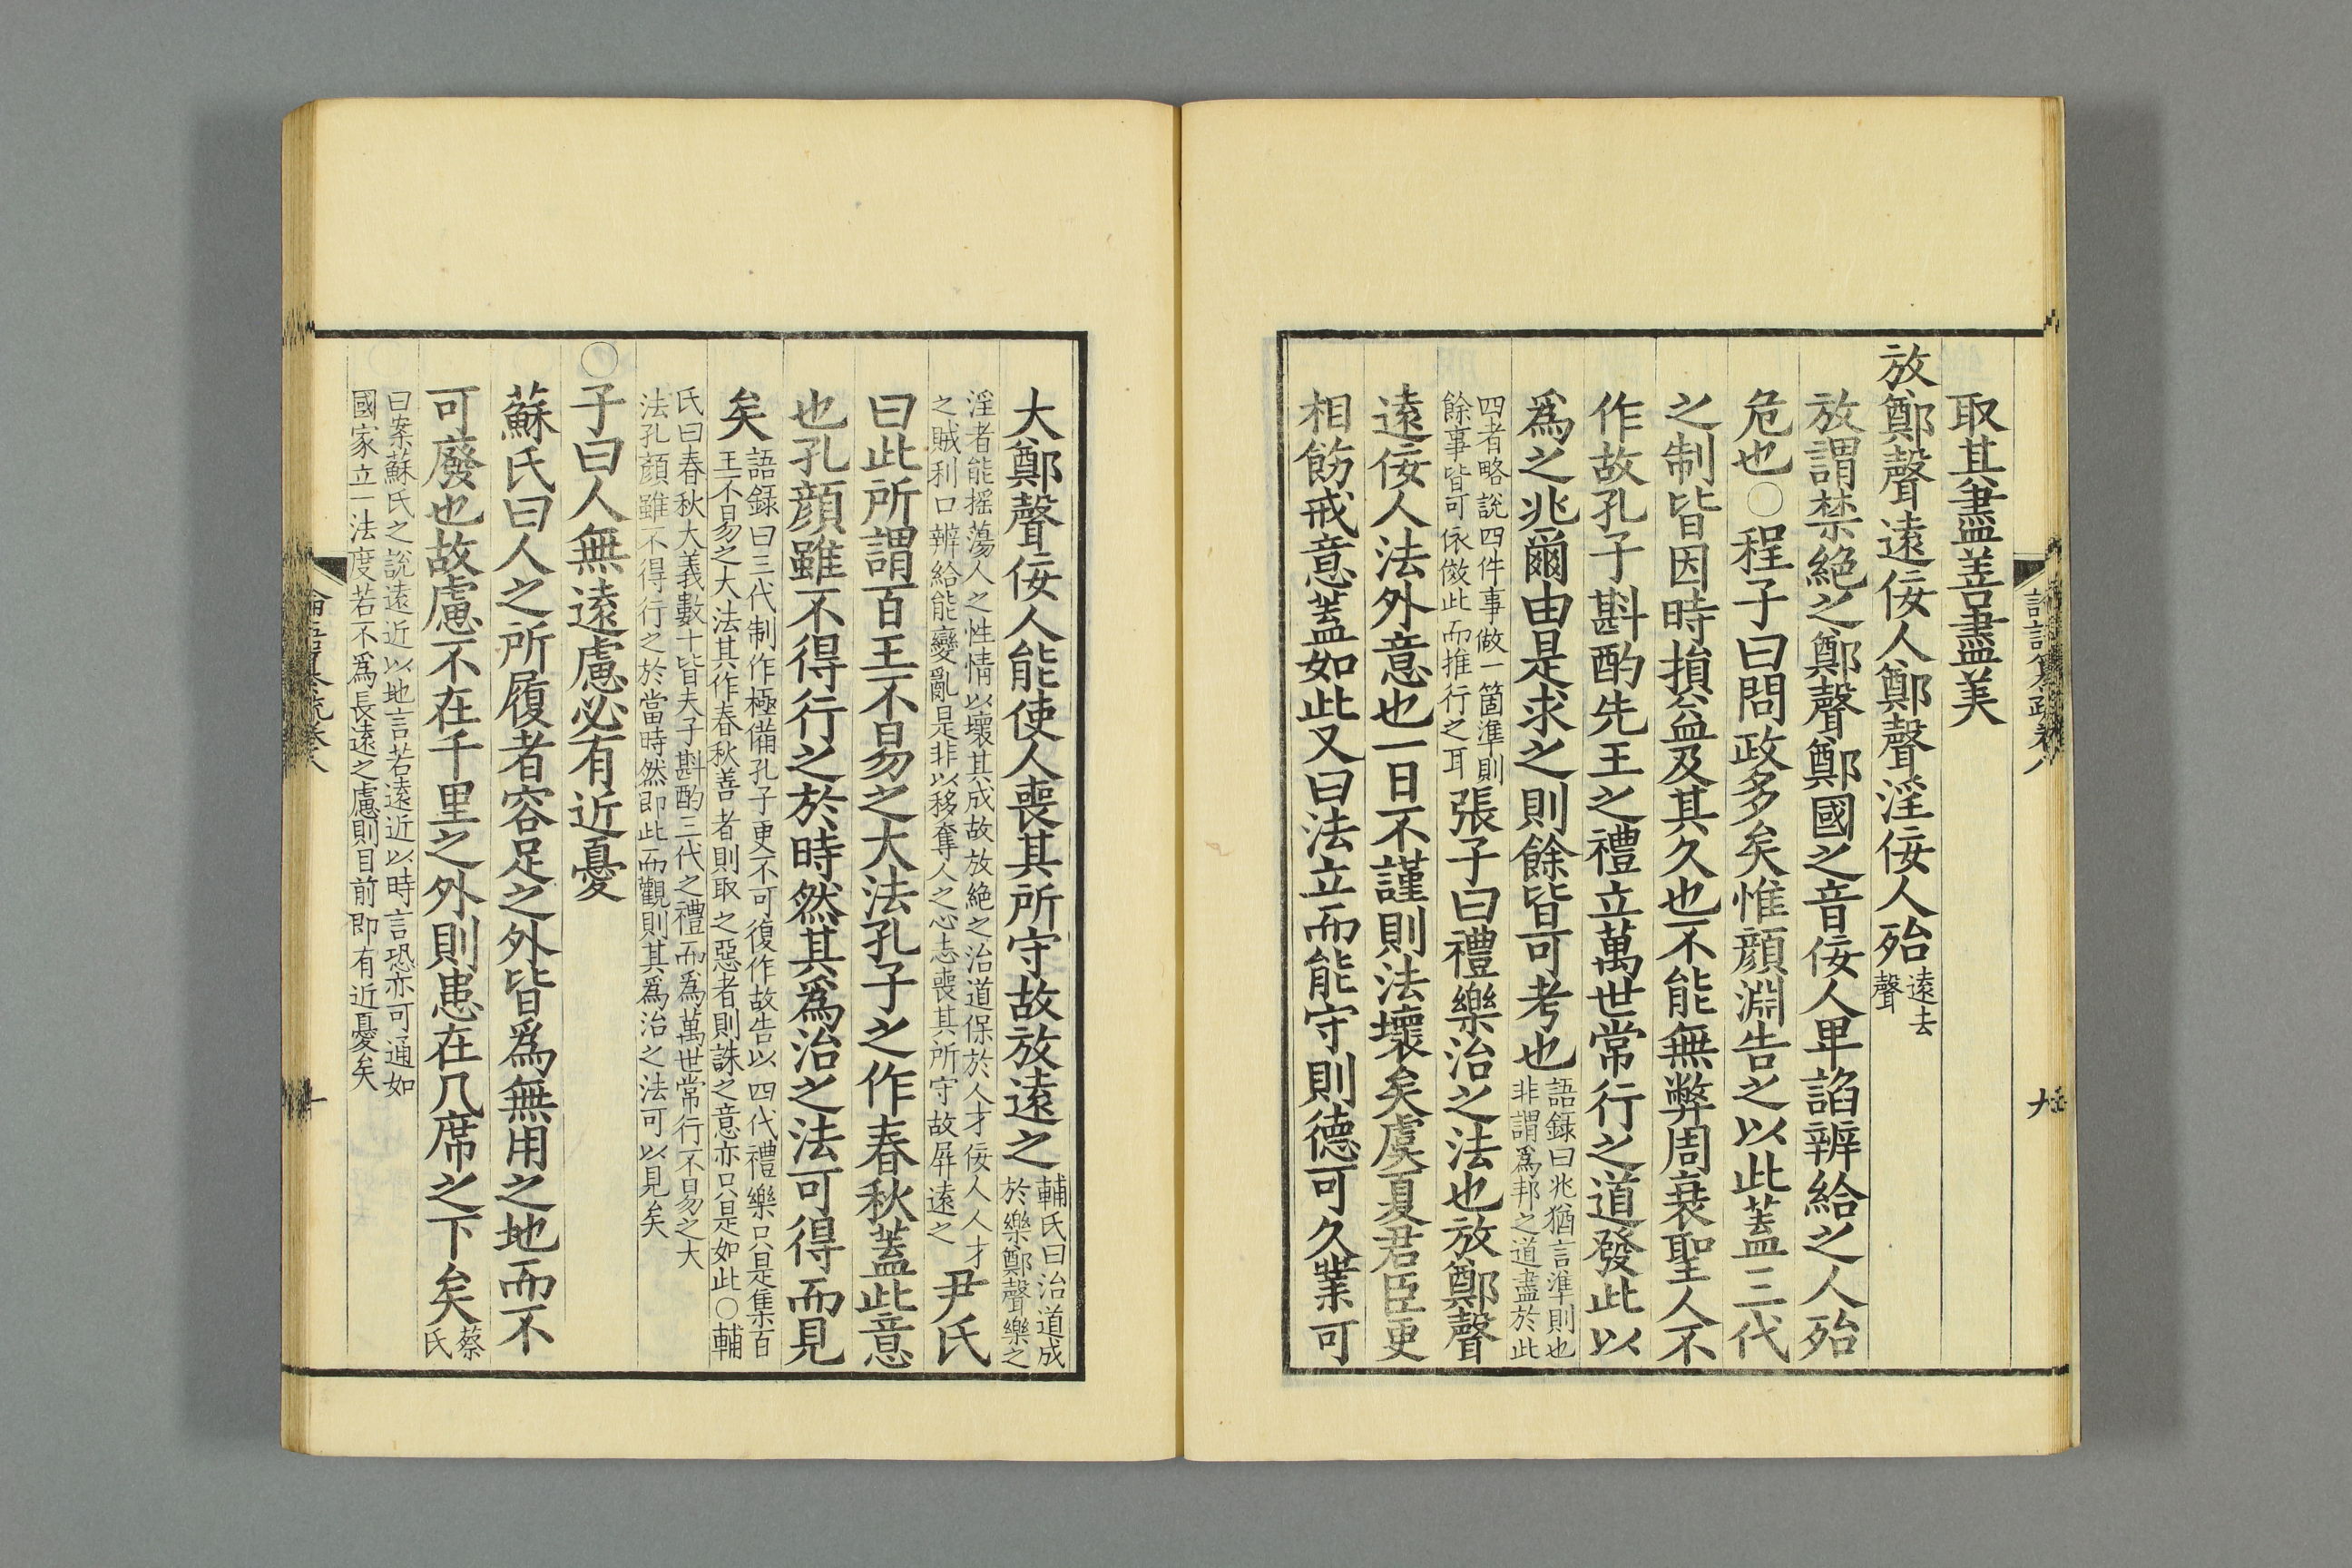 取其盡善盡美
放鄭聲遠佞人鄭聲淫佞人殆
遠去
聲
放謂禁絶之鄭聲鄭國之音佞人卑諂辨給之人殆
危也○程子曰問政多矣惟顔淵告之以此蓋三代
之制皆因時損益及其久也不能無弊周衰聖人不
作故孔子斟酌先王之禮立萬世常行之道發此以
爲之兆爾由是求之則餘皆可考也
語錄曰兆猶言準則也
非謂爲邦之道盡於此
四者略說四件事做一箇準則
餘事皆可依倣此而推行之耳
張子曰禮樂治之法也放鄭聲
遠佞人法外意也一日不謹則法壞矣虞夏君臣更
相飭戒意蓋如此又曰法立而能守則德可久業可
大鄭聲佞人能使人喪其所守故放遠之
輔氏曰治道成
於樂鄭聲樂之
淫者能搖蕩人之性情以壞其成故放絶之治道保於人才佞人人才
之賊利口辨給能變亂是非以移奪人之心志喪其所守故屏遠之
尹氏
曰此所謂百王不易之大法孔子之作春秋蓋此意
也孔顔雖不得行之於時然其爲治之法可得而見
矣
語録曰三代制作極備孔子更不可復作故告以四代禮樂只是集百
王不易之大法其作春秋善者則取之惡者則誅之意亦只是如此○輔
氏曰春秋大義數十皆夫子斟酌三代之禮而爲萬世常行不易之大
法孔顔雖不得行之於當時然即此而觀則其爲治之法可以見矣
○子曰人無遠慮必有近憂
蘇氏曰人之所履者容足之外皆爲無用之地而不
可廢也故慮不在千里之外則患在几席之下矣
蔡
氏
曰案蘇氏之說遠近以地言若遠近以時言恐亦可通如
國家立一法度若不爲長遠之慮則目前即有近憂矣